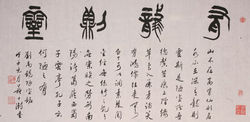 有龍則靈
山不在高有仙則
名水不在深有龍則
靈斯是陋室惟吾
德馨苔痕上階綠
草色入簾青談笑
有鴻儒往來無白
丁可以調素琴閱
金經無絲竹之亂
耳無案牘之勞形南
陽諸葛廬西蜀
子雲亭孔子云
何陋之有
劉禹錫陋室銘